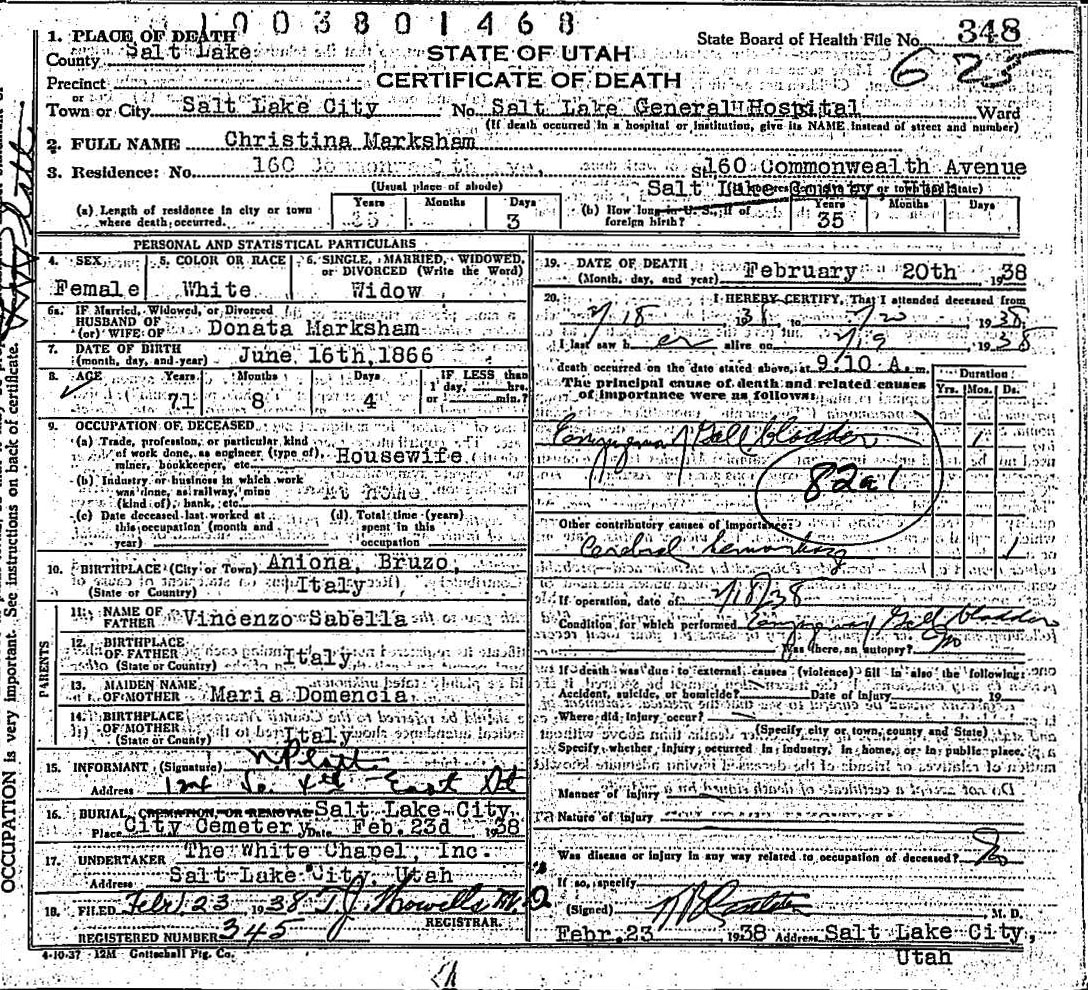 1003801468
1. PLACE OF DEATH
County Salt Lake
Precinct
or
Town or City Salt Lake City No. Salt Lake General Hospital Ward
(If death occurred in a hospital or institution, give its NAME instead of street and number)
STATE OF UTAH
CERTIFICATE OF DEATH
State Board of Health File No. 348
625
2. FULL NAME Christina Marksham
3. Residence: No. 160 St. 160 Commonwealth Avenue
(Usual place of abode)
Salt Lake
(a) Length of residence in city or town where death occurred. Years 35 Months Days 3
(b) How long in U. S., if of foreign birth? Years 35 Months Days
PERSONAL AND STATISTICAL PARTICULARS
4. SEX Female
5. COLOR OR RACE White
6. SINGLE, MARRIED, WIDOWED, or DIVORCED (Write the Word) Widow
6a. IF Married, Widowed, or Divorced
HUSBAND OF
(or) WIFE OF Donata Marksham
7. DATE OF BIRTH
(month, day, and year) June 16th, 1866
8. AGE Years 71 Months 8 Days 4 IF LESS than 1 day, hrs. or min.?
9. OCCUPATION OF DECEASED
(a) Trade, profession, or particular kind
of work done, as engineer (type of),
miner, bookkeeper, etc. Housewife
(b) Industry or business in which work
was done, as railway, mine
(kind of), bank, etc. At home
(c) Date deceased last worked at
this occupation (month and
year)
(d) Total time (years)
spent in this
occupation
10. BIRTHPLACE (City or Town) Aniona, Bruzo,
(State or Country) Italy
PARENTS
11. NAME OF
FATHER Vincenzo Sabella
12. BIRTHPLACE
OF FATHER
(State or Country) Italy
13. MAIDEN NAME
OF MOTHER Maria Domencia
14. BIRTHPLACE
OF MOTHER
(State or Country) Italy
15. INFORMANT (Signature)
Address So. 4th East St
16. BURIAL, CREMATION, OR REMOVAL Salt Lake City
Place City Cemetery Date Feb. 23d 1938
17. UNDERTAKER The White Chapel, Inc.
Address Salt Lake City, Utah
18. FILED Feb. 23 1938 T. J. Howells M.D.
REGISTRAR.
REGISTERED NUMBER 345
4-10-37 12M Gottschall Ptg. Co.
19. DATE OF DEATH
(Month, day, and year) February 20th 1938
20. I HEREBY CERTIFY, That I attended deceased from
2/18 1938 to 2/20 1938
I last saw her alive on 2/19 1938
death occurred on the date stated above, at 9:10 A. m.
The principal cause of death and related causes
of importance were as follows:
Duration
Yrs. Mos. Ds.
Gall bladder 1
82a1
Other contributory causes of importance:
Cerebral hemorrhage 1
If operation, date of 2/18/38
Condition for which performed Gall bladder
Was there an autopsy? No
If death was due to external causes (violence) fill in also the following:
Accident, suicide, or homicide? Date of injury 19
Where did injury occur?
(Specify city or town, county and State)
Specify whether injury occurred in industry, in home, or in public place.
Manner of injury
Nature of injury
Was disease or injury in any way related to occupation of deceased? No
If so, specify
(Signed) M. D.
Febr. 23 1938 Address Salt Lake City,
Utah
OCCUPATION is very important. See instructions on back of certificate.